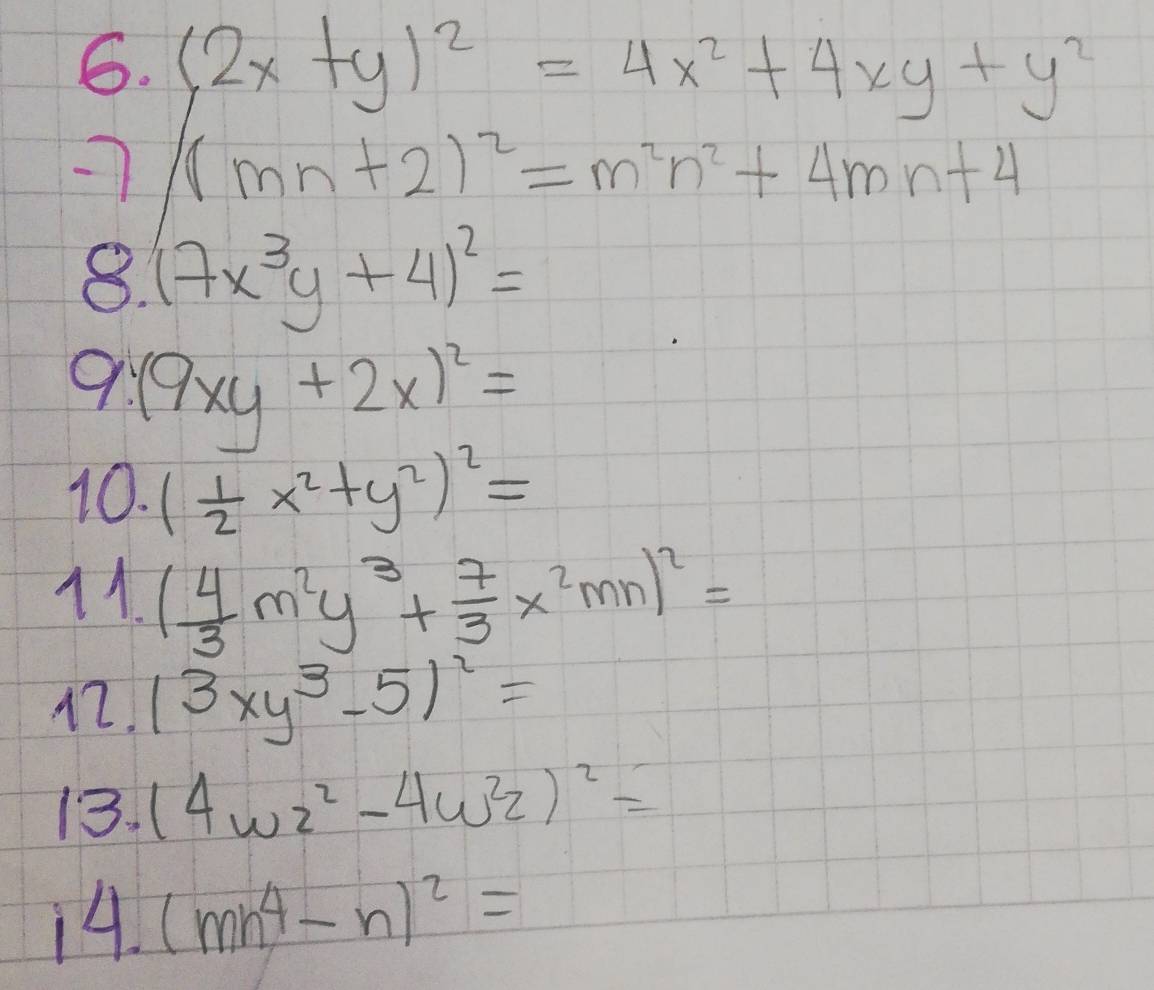 6. (2x + y)² = 4x² + 4xy + y²
7 (mn + 2)² = m²n² + 4mn + 4
8. (7x³y + 4)² =
9. (9xy + 2x)² =
10. (1/2 x² + y²)² =
11. (4/3 m²y³ + 7/3 x²mn)² =
12. (3xy³ - 5)² =
13. (4wz² - 4w²z)² =
14. (mn⁴ - n)² =